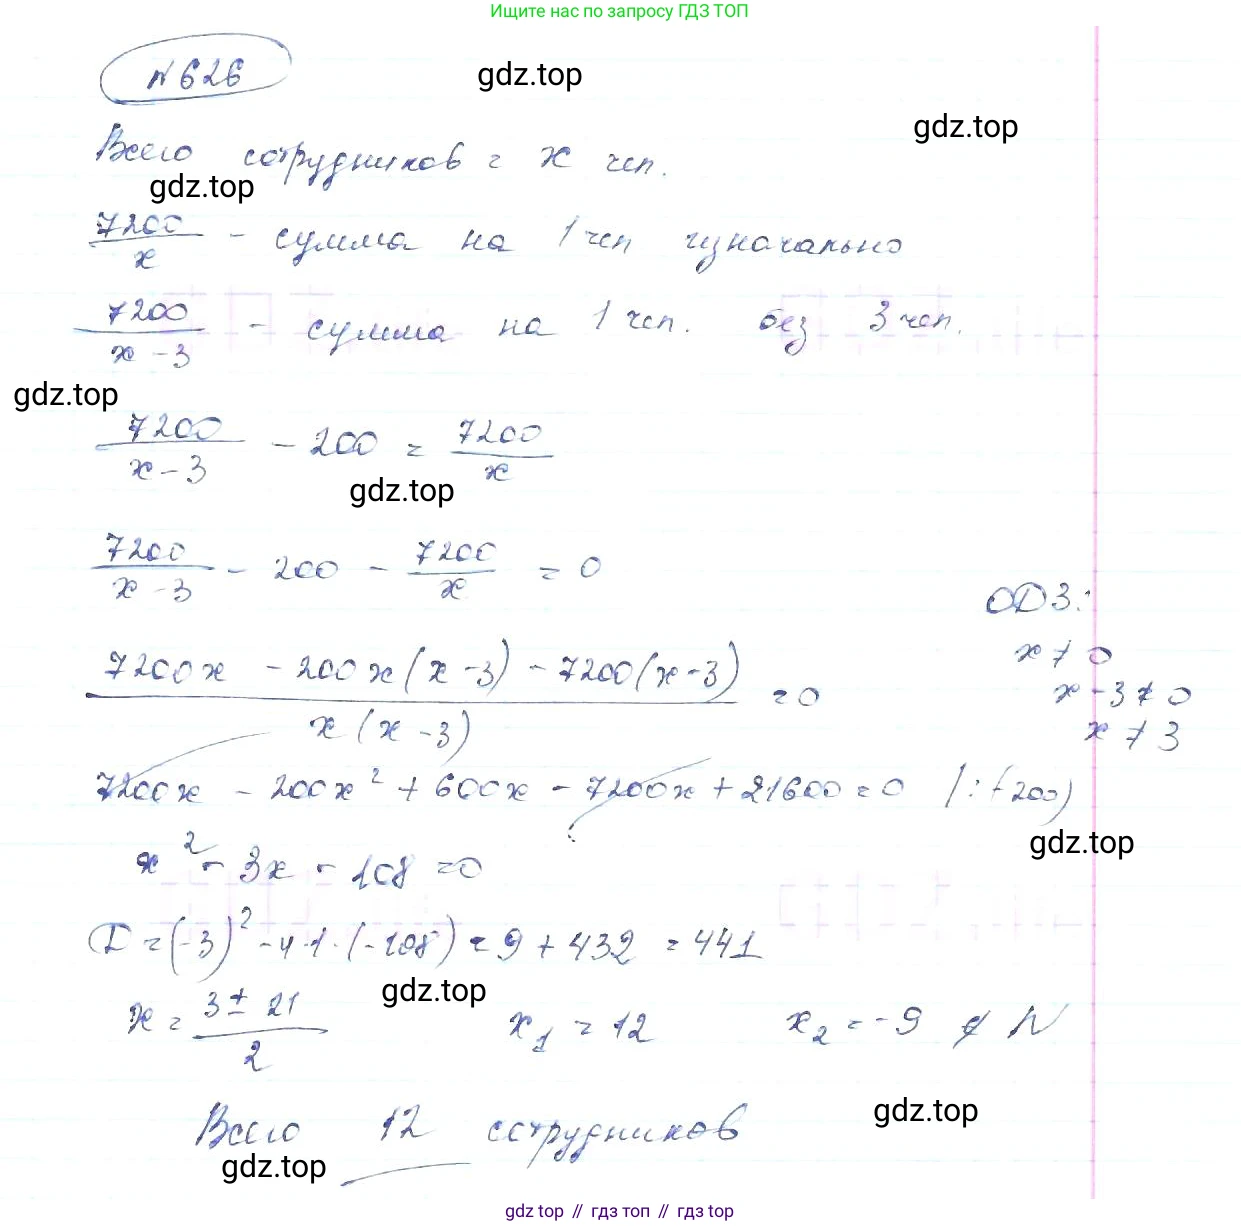 Ищите нас по запросу ГДЗ ТОП
№626
gdz.top
gdz.top
Всего сотрудников = x чел.
gdz.top
7200/x - сумма на 1 чел изначально
7200/(x-3) - сумма на 1 чел. без 3 чел.
gdz.top
7200/(x-3) - 200 = 7200/x
gdz.top
7200/(x-3) - 200 - 7200/x = 0
ОДЗ:
x ≠ 0
x-3 ≠ 0
x ≠ 3
(7200x - 200x(x-3) - 7200(x-3))/(x(x-3)) = 0
7200x - 200x² + 600x - 7200x + 21600 = 0 |:(-200)
gdz.top
x² - 3x - 108 = 0
D = (-3)² - 4·1·(-108) = 9 + 432 = 441
gdz.top
x = (3 ± 21)/2 x₁ = 12 x₂ = -9 ∉ N
gdz.top
Всего 12 сотрудников
gdz.top
gdz top // гдз топ // gdz top